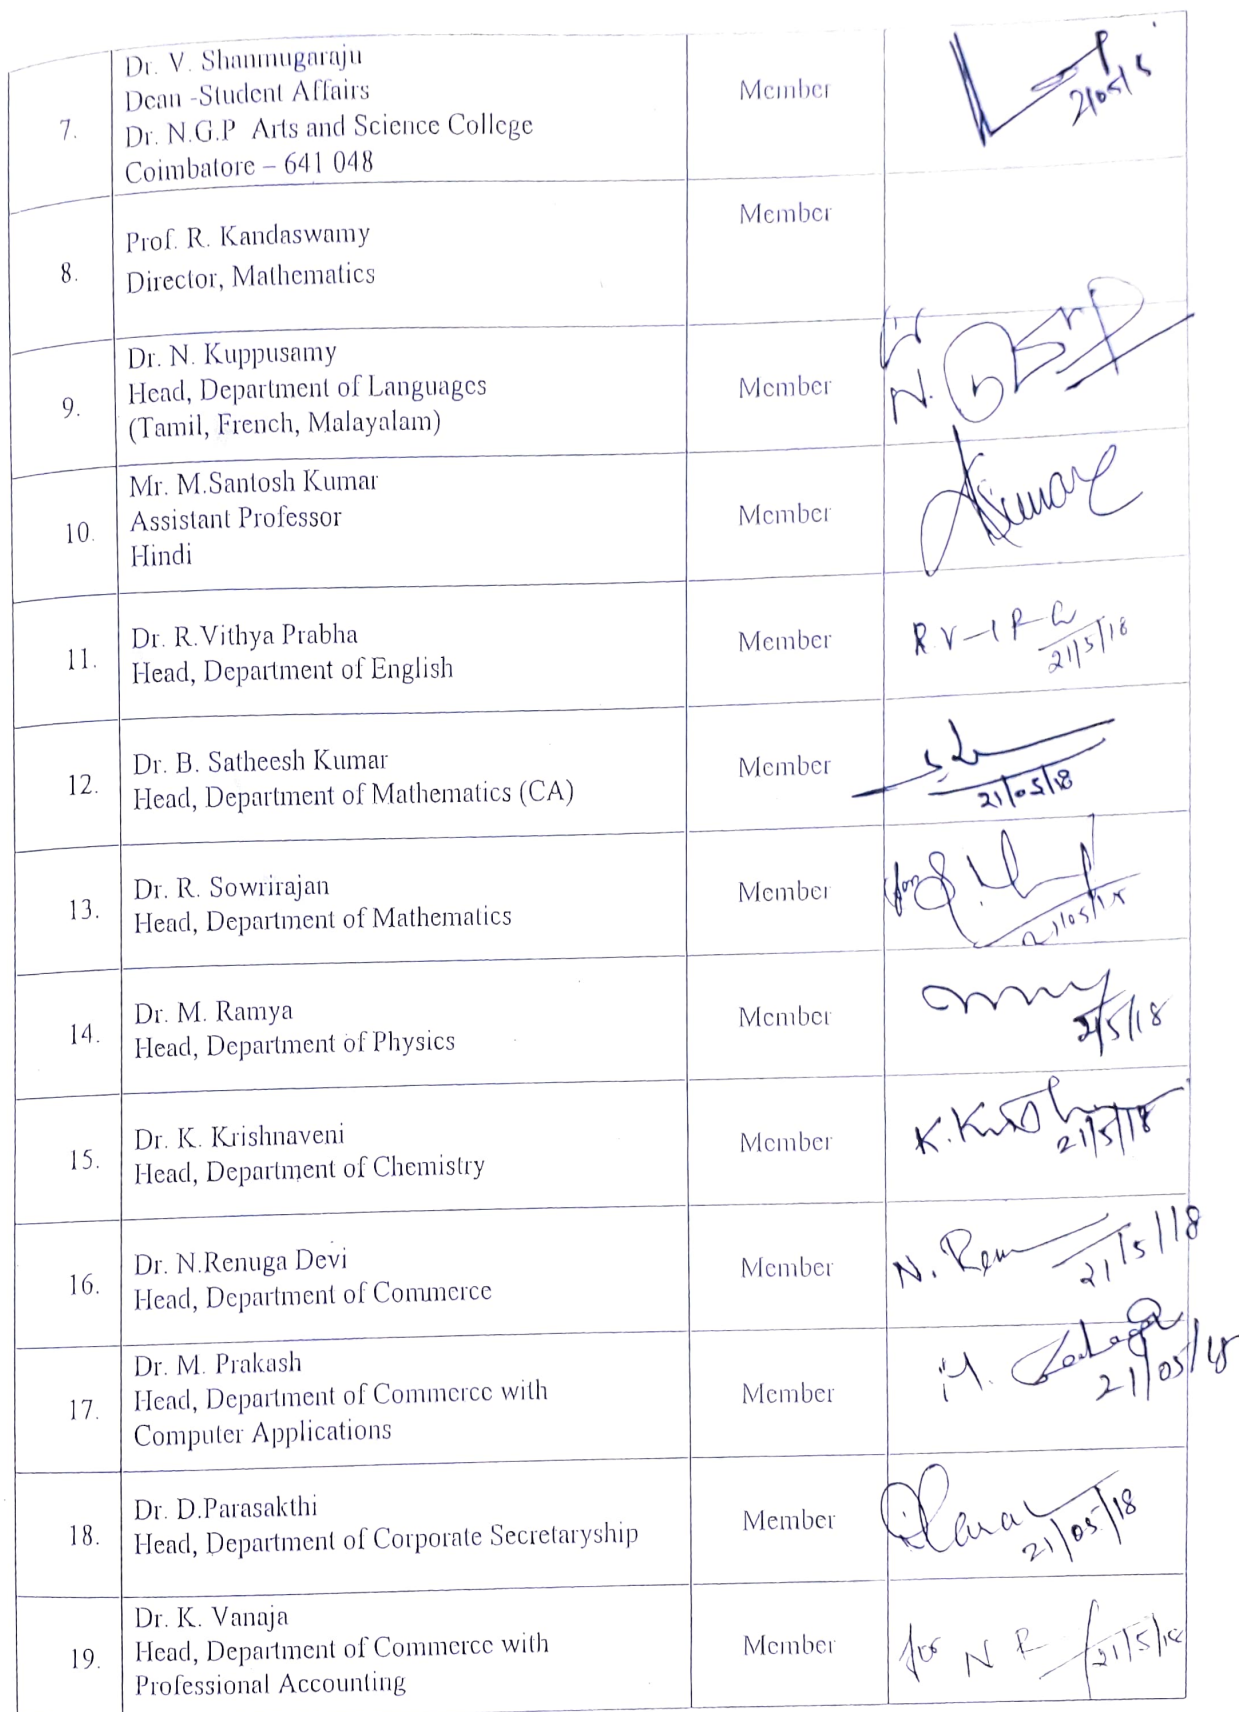 7.
Dr. V. Shanmugaraju
Dean -Student Affairs
Dr. N.G.P Arts and Science College
Coimbatore – 641 048
Member
8.
Prof. R. Kandaswamy
Director, Mathematics
Member
9.
Dr. N. Kuppusamy
Head, Department of Languages
(Tamil, French, Malayalam)
Member
N.
10.
Mr. M.Santosh Kumar
Assistant Professor
Hindi
Member
11.
Dr. R.Vithya Prabha
Head, Department of English
Member
21/5/18
12.
Dr. B. Satheesh Kumar
Head, Department of Mathematics (CA)
Member
21/05/18
13.
Dr. R. Sowrirajan
Head, Department of Mathematics
Member
for
14.
Dr. M. Ramya
Head, Department of Physics
Member
21/5/18
15.
Dr. K. Krishnaveni
Head, Department of Chemistry
Member
21/5/18
16.
Dr. N.Renuga Devi
Head, Department of Commerce
Member
N. Ren
21/5/18
17.
Dr. M. Prakash
Head, Department of Commerce with
Computer Applications
Member
21/05/18
18.
Dr. D.Parasakthi
Head, Department of Corporate Secretaryship
Member
21/05/18
19.
Dr. K. Vanaja
Head, Department of Commerce with
Professional Accounting
Member
for N R
21/5/18